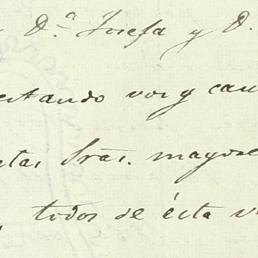 Dª Josefa y D.
ctando voy y cau
tas Sras. mayore
todos de ésta v